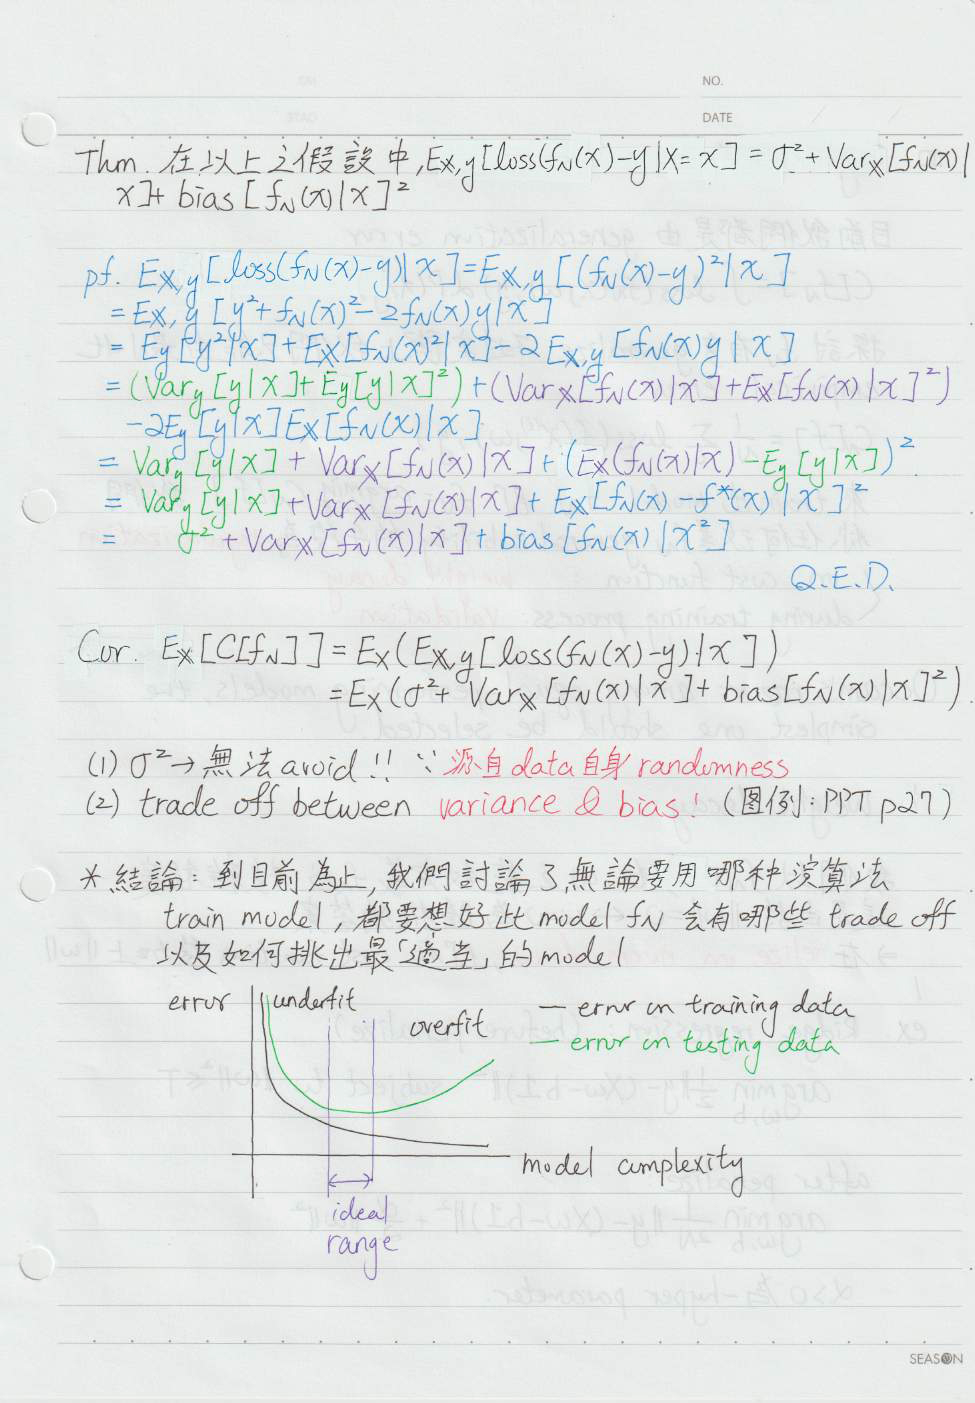 NO.
DATE
Thm. 在以上之假設中, E𝕏,y[loss(fN(x)-y|X=x] = σ²+Var𝕏[fN(x)|
x]+ bias[fN(x)|x]²
pf. E𝕏,y[loss(fN(x)-y)|x]=E𝕏,y[(fN(x)-y)²|x]
=E𝕏,y[y²+fN(x)²-2fN(x)y|x]
= Ey[y²|x]+E𝕏[fN(x)²|x]-2E𝕏,y[fN(x)y|x]
=(Vary[y|x]+Ey[y|x]²)+(Var𝕏[fN(x)|x]+E𝕏[fN(x)|x]²)
-2Ey[y|x]E𝕏[fN(x)|x]
= Vary[y|x] + Var𝕏[fN(x)|x]+(E𝕏(fN(x)|x)-Ey[y|x])².
= Vary[y|x]+Var𝕏[fN(x)|x]+E𝕏[fN(x)-f*(x)|x]²
= σ²+Var𝕏[fN(x)|x]+bias[fN(x)|x²]
Q.E.D.
Cor. E𝕏[C[fN]]=EX(E𝕏,y[loss(fN(x)-y)|x])
=EX(σ²+Var𝕏[fN(x)|x]+bias[fN(x)|x]²).
(1) σ²→無法avoid!! ∵源自data自身randomness
(2) trade off between variance & bias! (图例:PPT p27)
* 結論: 到目前為止, 我們討論了無論要用哪种演算法
train model, 都要想好此 model fN 会有哪些 trade off
以及如何挑出最「適당」的 model
error underfit — error on training data
overfit — error on testing data
model complexity
ideal
range
SEASON